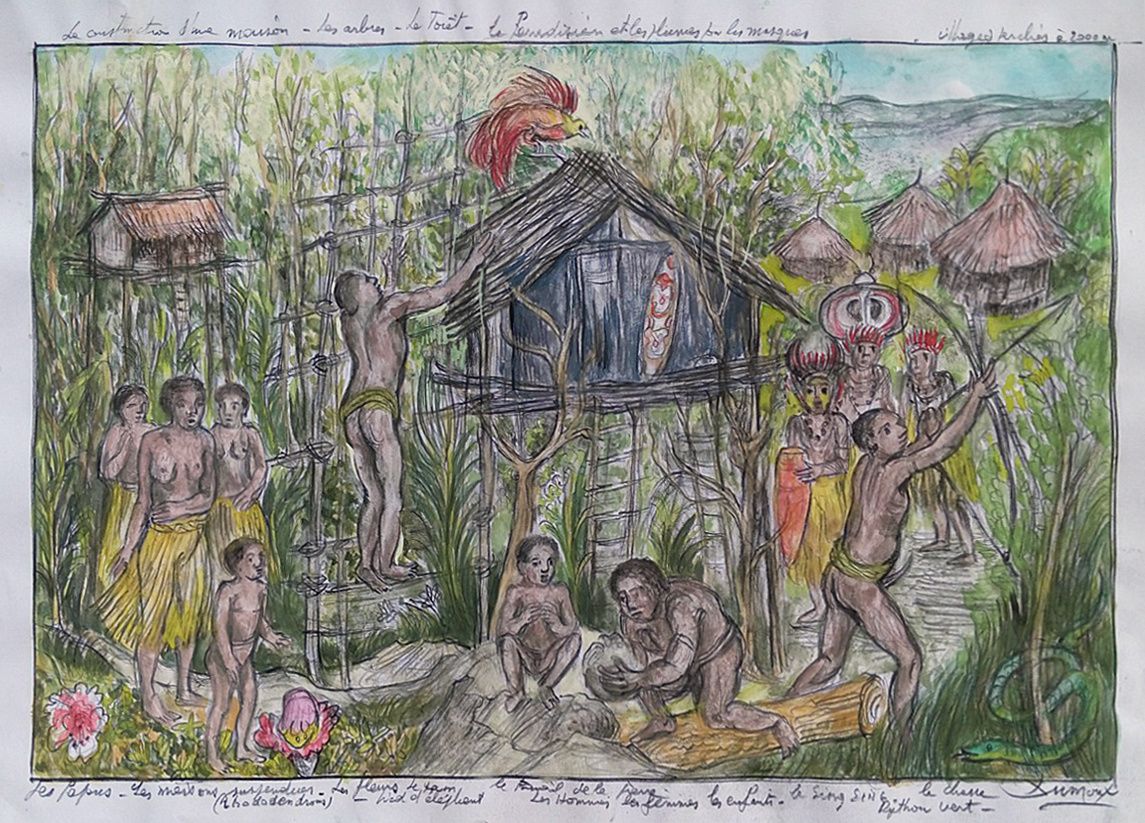 La construction d'une maison - Les arbres - La Forêt - Le Paradisier et les plumes pour les masques
villages perchés à 2000 m
Les Papous - Les maisons suspendues - Les fleurs - le travail de la pierre - le Sing Sing - la chasse Dumoux
(Rhododendrons) - Pied d'éléphant Les Hommes les femmes les enfants - Python vert -